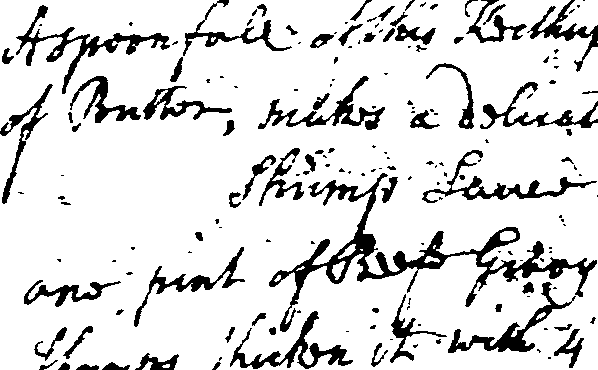 A spoonfule of this Ketchup
of Butter, makes a delicat
Shrimp Sauce
one pint of Beefe Gravy
thicken it with 4